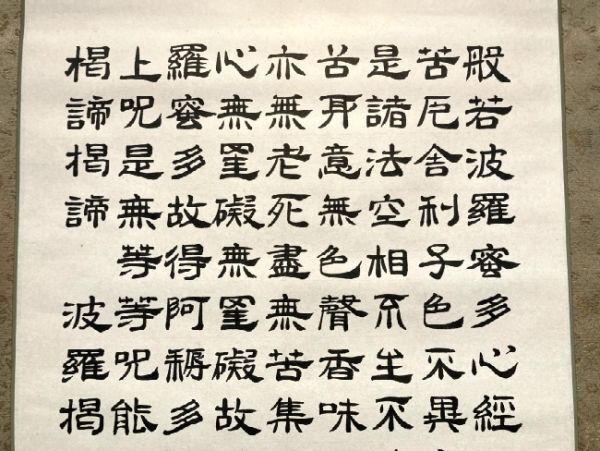 般若波羅蜜多心經
苦厄舍利子色不異
是諸法空相不生不
舌身意無色聲香味
亦無老死盡無苦集
心無罣礙無罣礙故
羅蜜多故得阿耨多
上呪是無等等呪能
揭諦揭諦 波羅揭